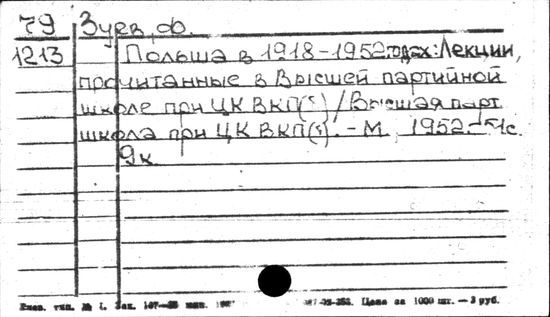 79 Зуев, Ф.
1213 Польша в 1918-1952 годах: Лекции,
прочитанные в Высшей партийной
школе при ЦК ВКП(б) / Высшая парт.
школа при ЦК ВКП(б). - М., 1952. - 51с.
9к
тип. № 1. Зак. Цена за 1000 шт. — 3 руб.